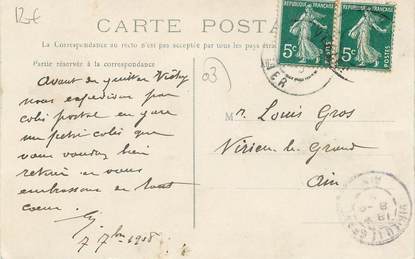 CARTE POSTA
La Correspondance au recto n'est pas acceptée par tous les pays étra
Partie réservée à la correspondance
RÉPUBLIQUE FRANÇAISE
5c
POSTES
RÉPUBLIQUE FRANÇAISE
5c
POSTES
03
Avant de quitter Vichy
nous expédions par
colis postal en gare
un petit colis que
vous voudrez bien
retirer en vous
embrassons en tout
coeur.
7 7bre 1908
M
Mr. Louis Gros
Virieu le Grand
Ain